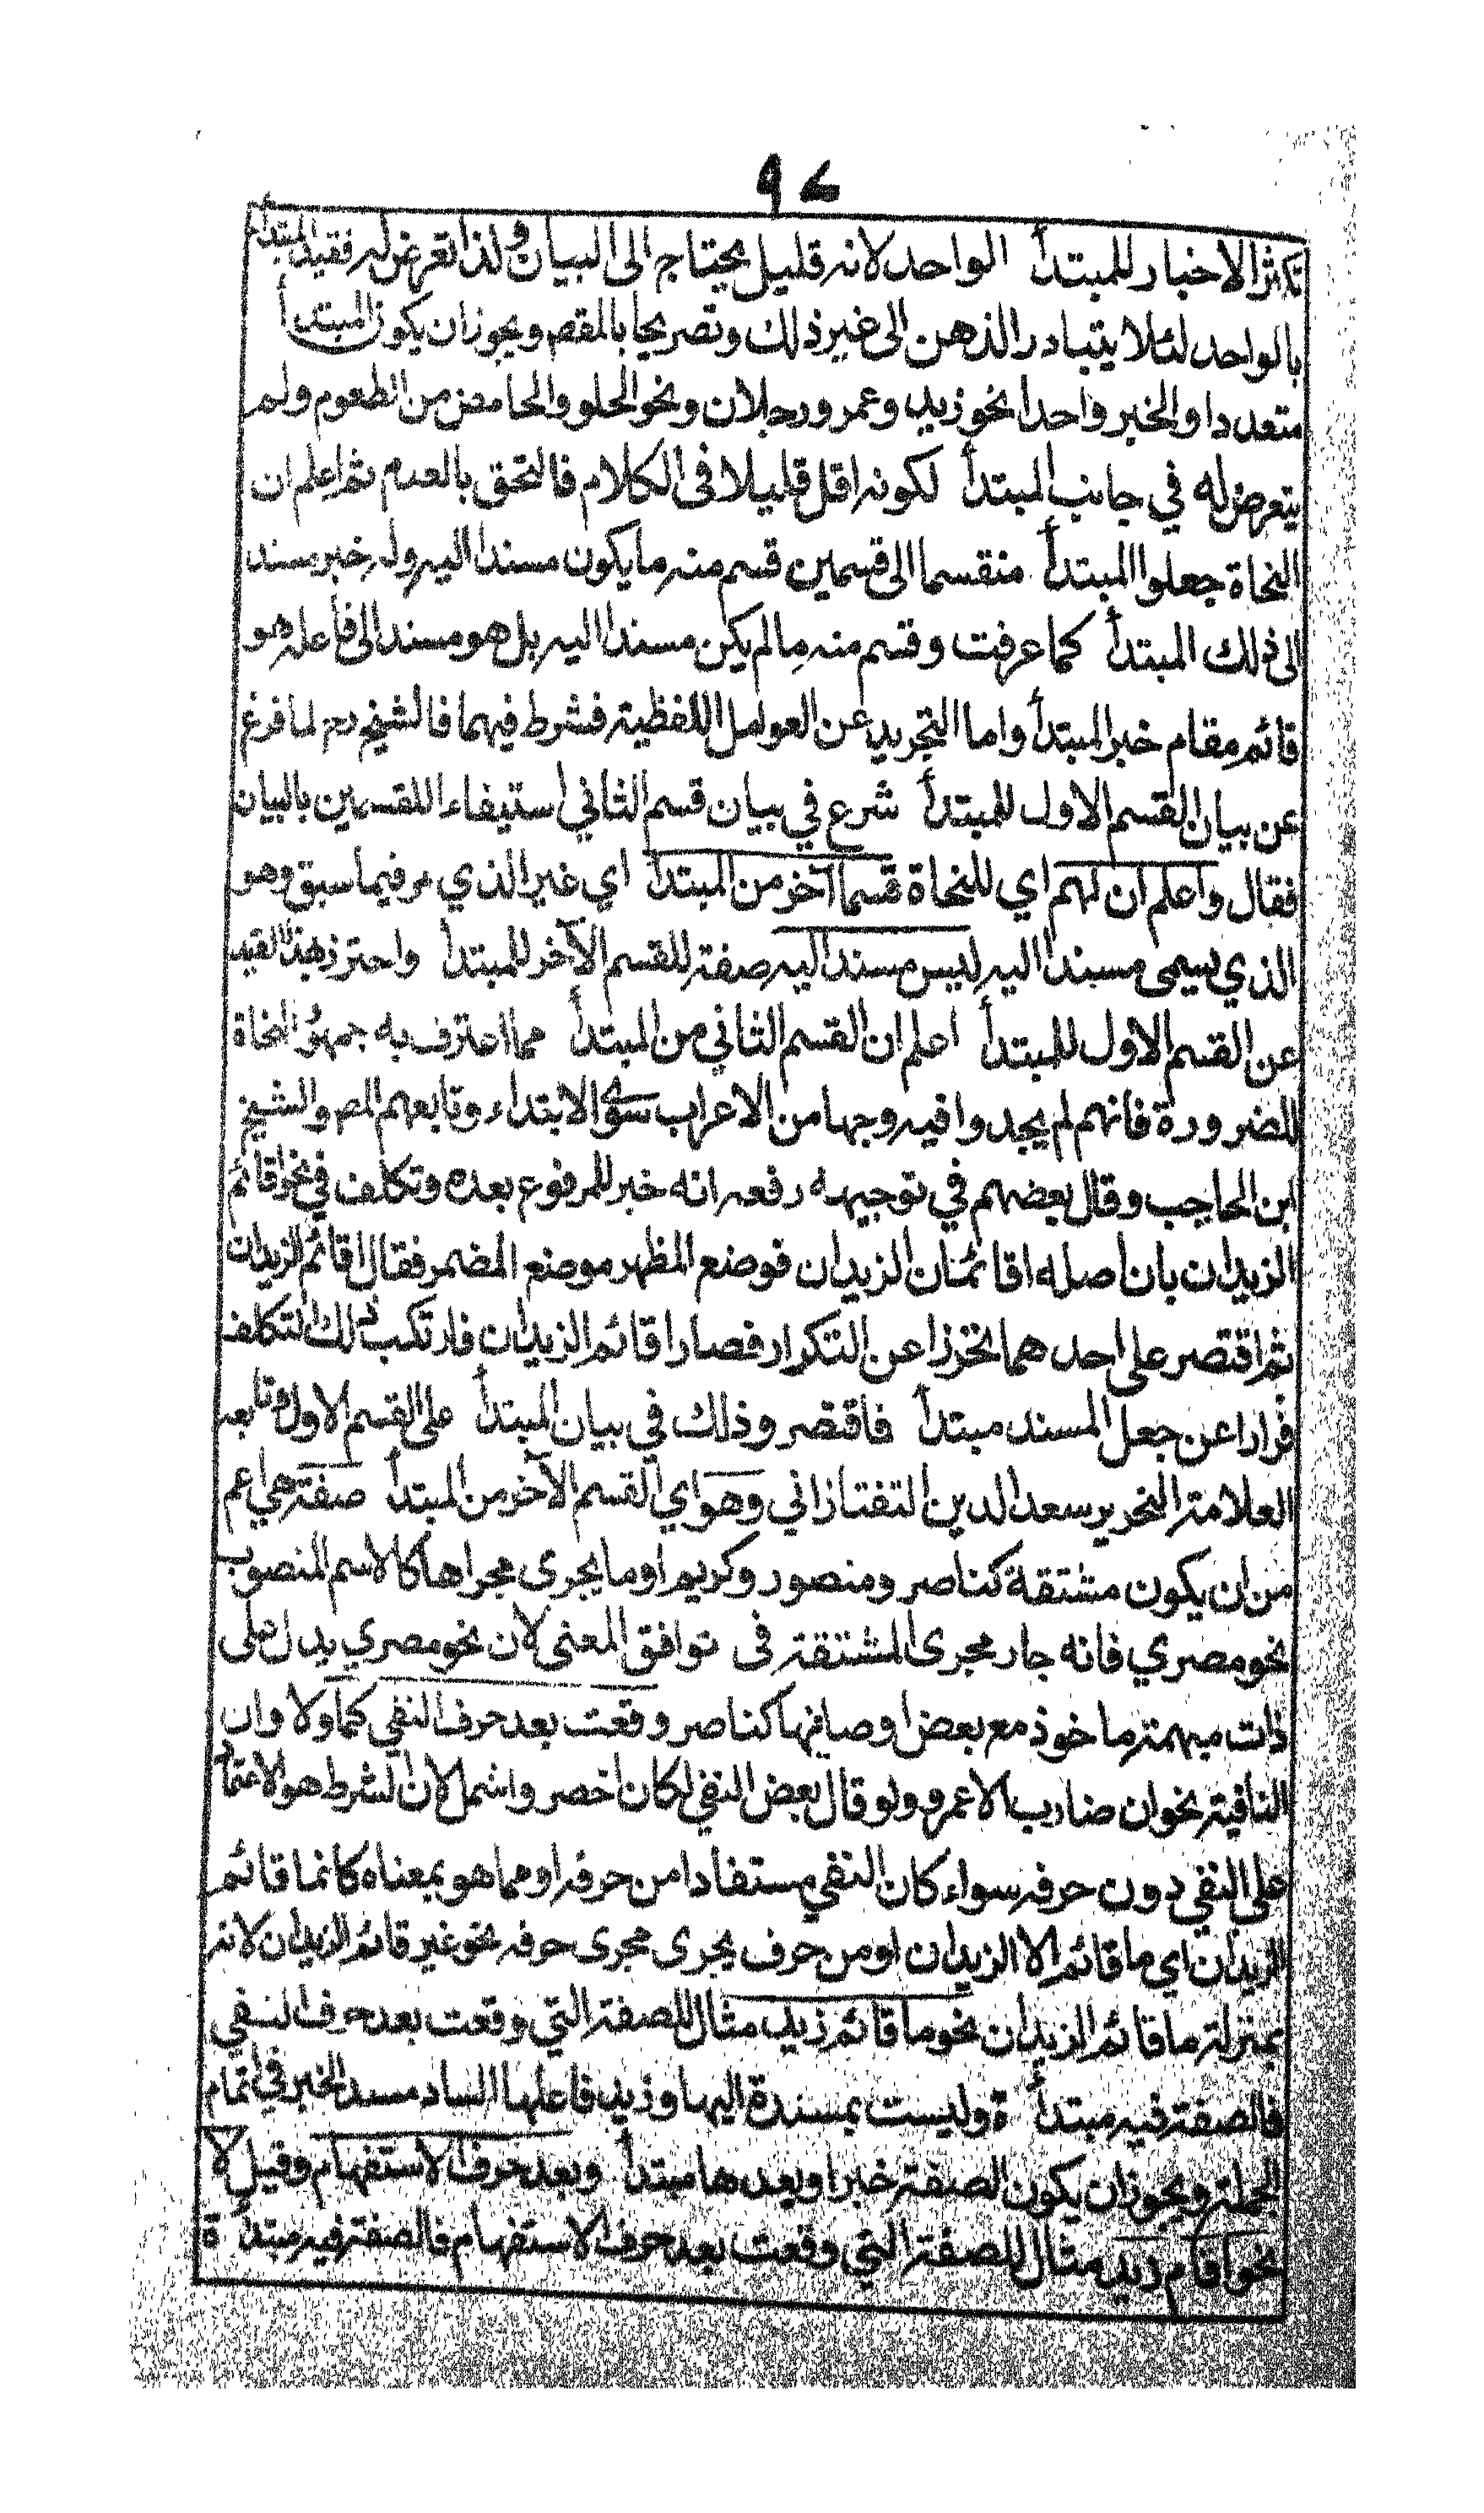 ٩٧
تكثر الاخبار للمبتدأ الواحد لانه قليل يحتاج الى البيان ولذا تعرض له فقيد المبتدأ
بالواحد لئلا يتبادر الذهن الى غير ذلك وتصريحا بالمقص ويجوز ان يكون المبتدأ
متعددا والخبر واحدا نحو زيد وعمرو رجلان ونحو الحلو والحامض من الطعوم ولم
يتعرض له في جانب المبتدأ لكونه اقل قليلا فى الكلام فالتحق بالعدم ثم اعلم ان
النحاة جعلوا المبتدأ منقسما الى قسمين قسم منه ما يكون مسندا اليه وله خبر مسند
الى ذلك المبتدأ كما عرفت وقسم منه ما لم يكن مسندا اليه بل هو مسند الى فاعله هو
قائم مقام خبر المبتدأ واما التجريد عن العوامل اللفظية فشرط فيهما فالشيخ رح لما فرغ
عن بيان القسم الاول للمبتدأ شرع في بيان قسم الثاني استيفاء للقسمين بالبيان
فقال واعلم ان لهم اي للنحاة قسما آخر من المبتدأ اي غير الذي مر فيما سبق وهو
الذي يسمى مسندا اليه ليس مسندا اليه صفة للقسم الآخر للمبتدأ واحترز بهذا القيد
عن القسم الاول للمبتدأ اعلم ان القسم الثاني من المبتدأ مما اعترف به جمهور النحاة
للضرورة فانهم لم يجدوا فيه وجها من الاعراب سوى الابتداء وتابعهم المص والشيخ
ابن الحاجب وقال بعضهم في توجيهه رفعه انه خبر للمرفوع بعده وتكلف في نحو اقائم
الزيدان بان اصله اقائمان الزيدان فوضع المظهر موضع المضمر فقال اقائم الزيدان
ثم اقتصر على احدهما تحرزا عن التكرار فصار اقائم الزيدان فارتكب ذلك التكلف
فرارا عن جعل المسند مبتدأ فاقتصر وذلك في بيان المبتدأ على القسم الاول وتابعه
العلامة النحرير سعد الدين التفتازاني وهو اي القسم الآخر من المبتدأ صفة هي اعم
من ان يكون مشتقة كناصر ومنصور وكريم او ما يجرى مجراها كالاسم المنصوب
نحو مصري فانه جار مجرى المشتقة فى توافق المعنى لان نحو مصري يدل على
ذات مبهمة ماخوذ مع بعض اوصافها كناصر وقعت بعد حرف النفي كما ولا وان
النافية نحو ان ضارب الاعمرو ولو قال بعض النفي لكان اخصر واشمل لان الشرط هو الاعتماد
على النفي دون حرفه سواء كان النفي مستفادا من حرفه او مما هو بمعناه كانما قائم
الزيدان اي ما قائم الا الزيدان او من حرف يجرى مجرى حرفه نحو غير قائم الزيدان لانه
بمنزلة ما قائم الزيدان نحو ما قائم زيد مثال للصفة التي وقعت بعد حرف النفي
فالصفة فيه مبتدأ ة وليست بمسندة اليها وزيد فاعلها الساد مسد الخبر في اتمام
الجملة ويجوز ان يكون الصفة خبرا وبعدها مبتدأ وبعد حرف الاستفهام وقيل لا
نحو اقام زيد مثال للصفة التي وقعت بعد حرف الاستفهام فالصفة فيه مبتدأ ة